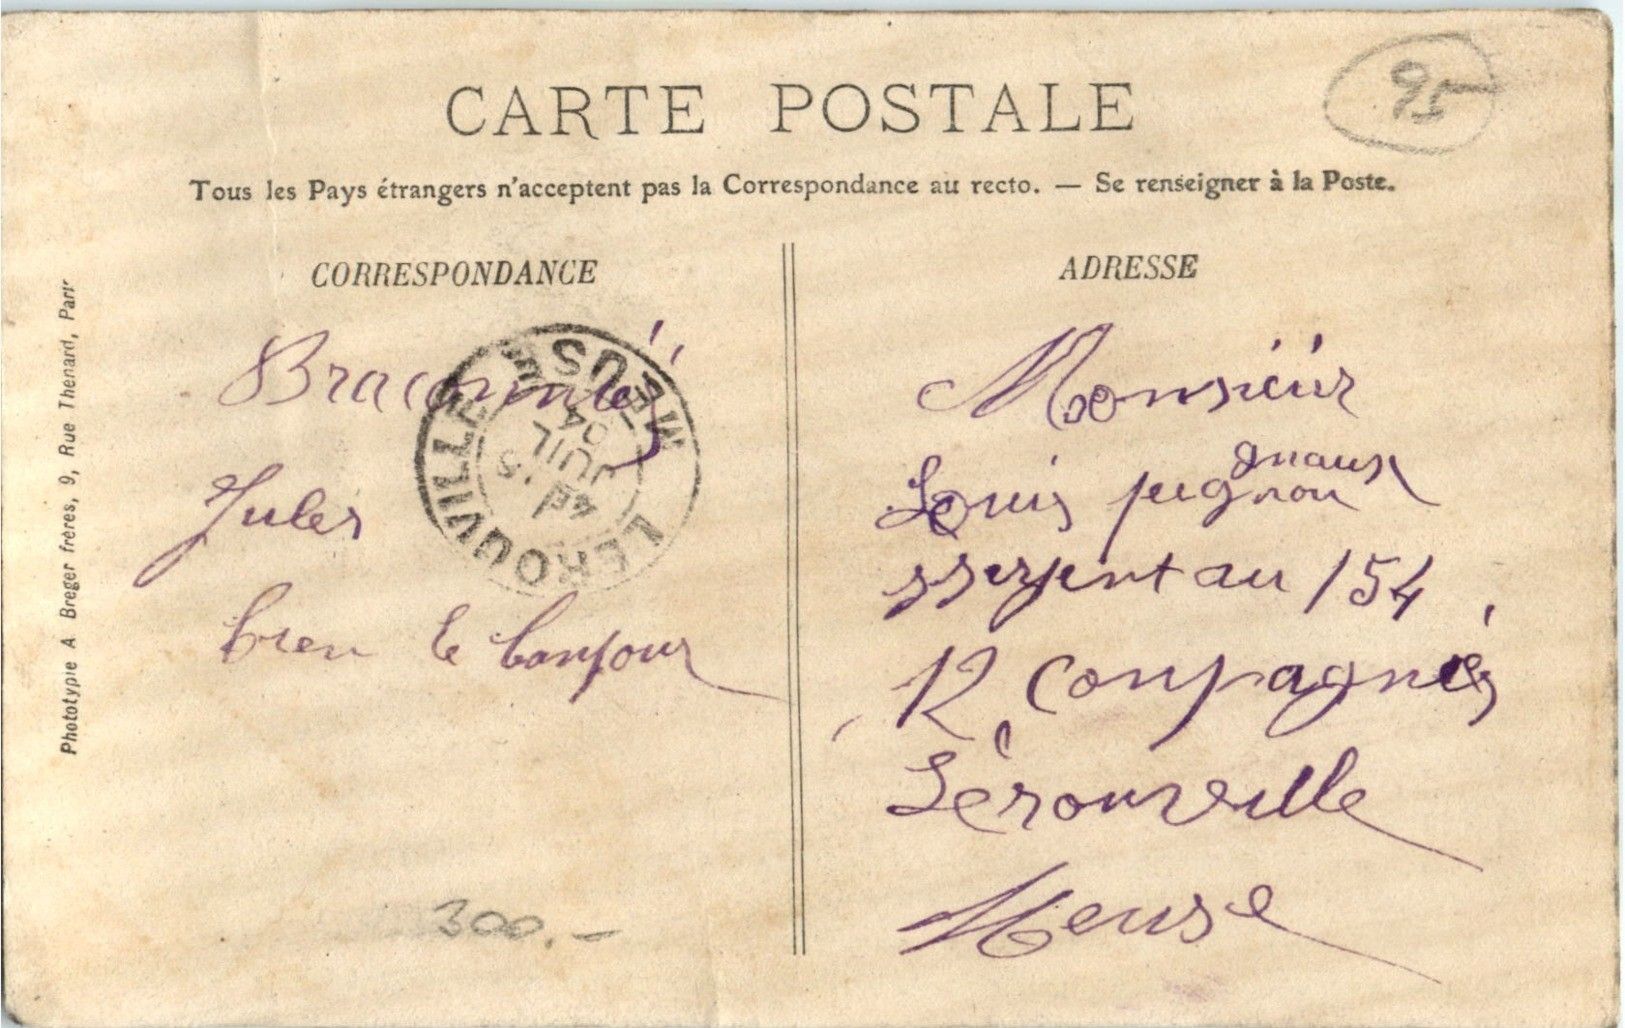 95
CARTE POSTALE
Tous les Pays étrangers n'acceptent pas la Correspondance au recto. — Se renseigner à la Poste.
CORRESPONDANCE
Jules
bien le bonjour
300.-
Phototypie A Breger frères, 9, Rue Thenard, Paris
LEROUVILLE MEUSE
JUIL
04
ADRESSE
Monsieur
Louis
au 154
12 Conpagnies
Lérouville
Meuse